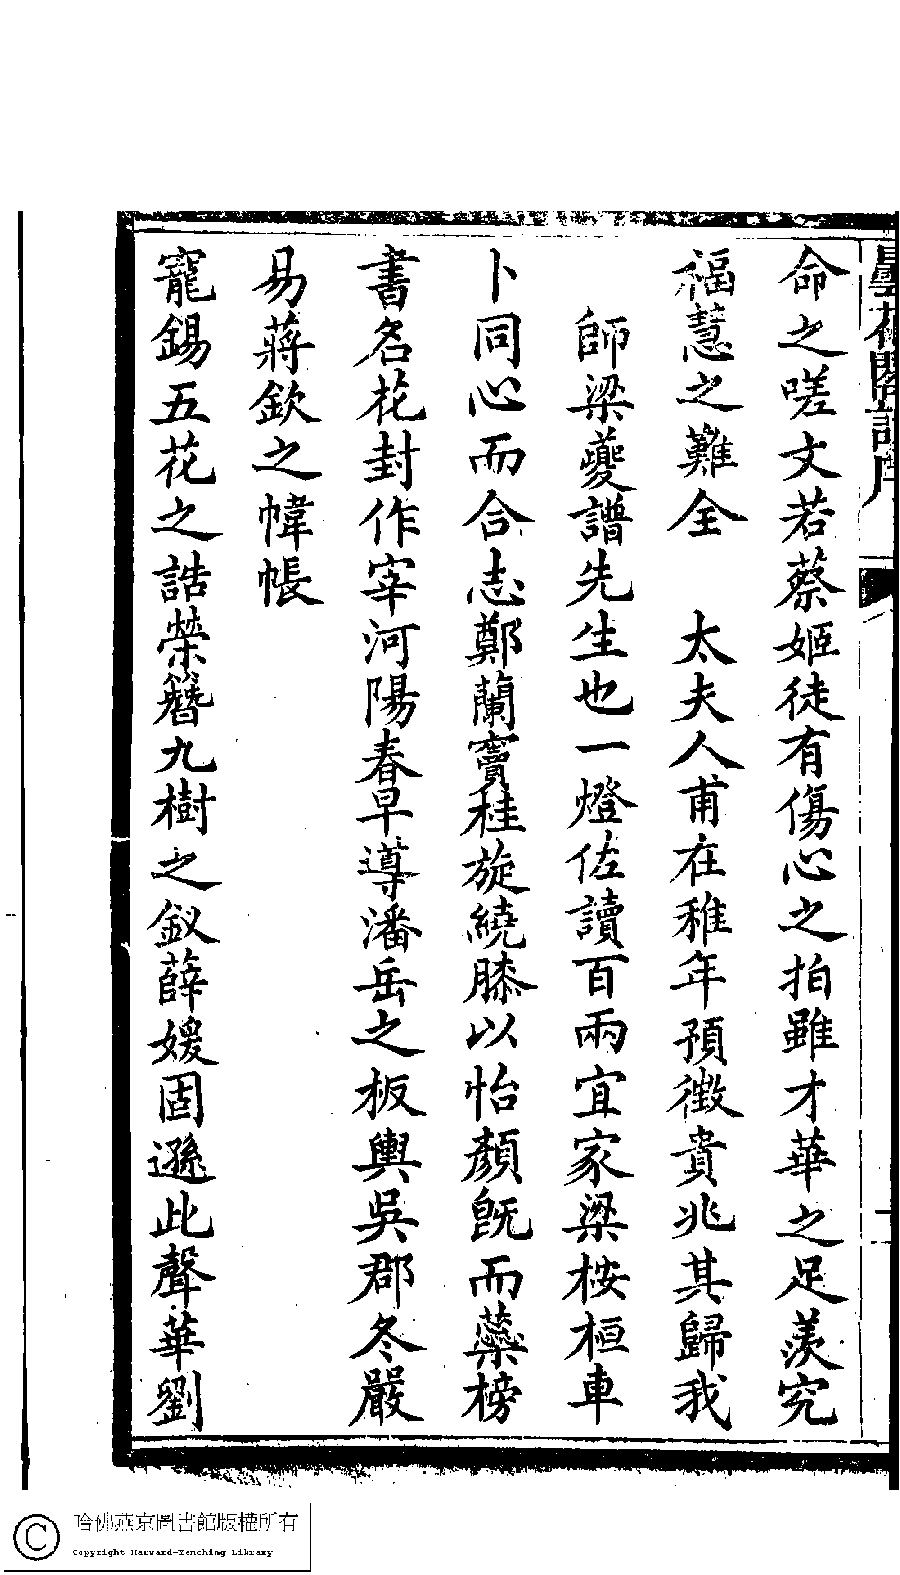 曇花閣詩序
命之嗟文若蔡姬徒有傷心之拍雖才華之足羨究
福慧之難全　太夫人甫在稚年預徵貴兆其歸我
師梁夔譜先生也一燈佐讀百兩宜家梁桉桓車
卜同心而合志鄭蘭竇桂旋繞膝以怡顏旣而蘂榜
書名花封作宰河陽春早導潘岳之板輿吳郡冬嚴
易蔣欽之幃帳
寵錫五花之誥榮簪九樹之釵薛媛固遜此聲華劉
一
哈佛燕京圖書館版權所有
Copyright Harvard-Yenching Library